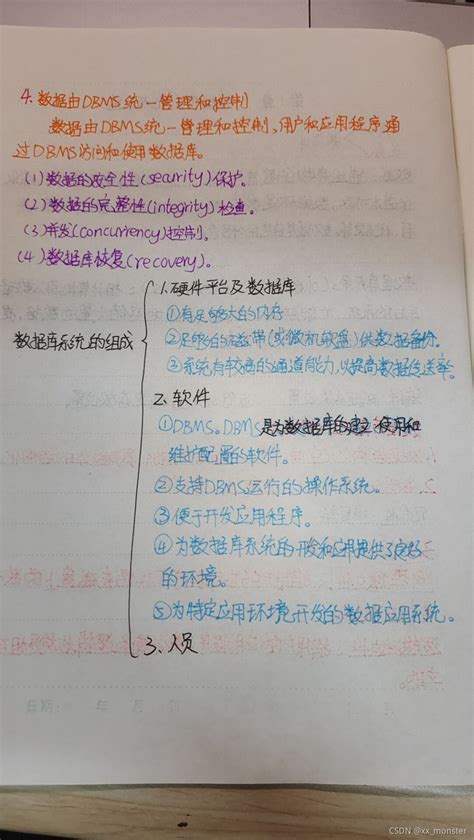 4.数据由DBMS统一管理和控制
数据由DBMS统一管理和控制,用户和应用程序通
过DBMS访问和使用数据库。
(1)数据的安全性(security)保护。
(2)数据的完整性(integrity)检查。
(3)并发(concurrency)控制。
(4)数据库恢复(recovery)。
数据库系统的组成
1.硬件平台及数据库
①有足够大的内存
②足够的磁带(或微机软盘)供数据备份。
③系统有较高的通道能力,以提高数据传送率。
2.软件
①DBMS。DBMS是为数据库的建立 使用和
维护配置的软件。
②支持DBMS运行的操作系统。
③便于开发应用程序。
④为数据库系统的开发和应用提供了良好
的环境。
⑤为特定应用环境开发的数据应用系统。
3、人员
日期: 年 月
CSDN @xx_monster